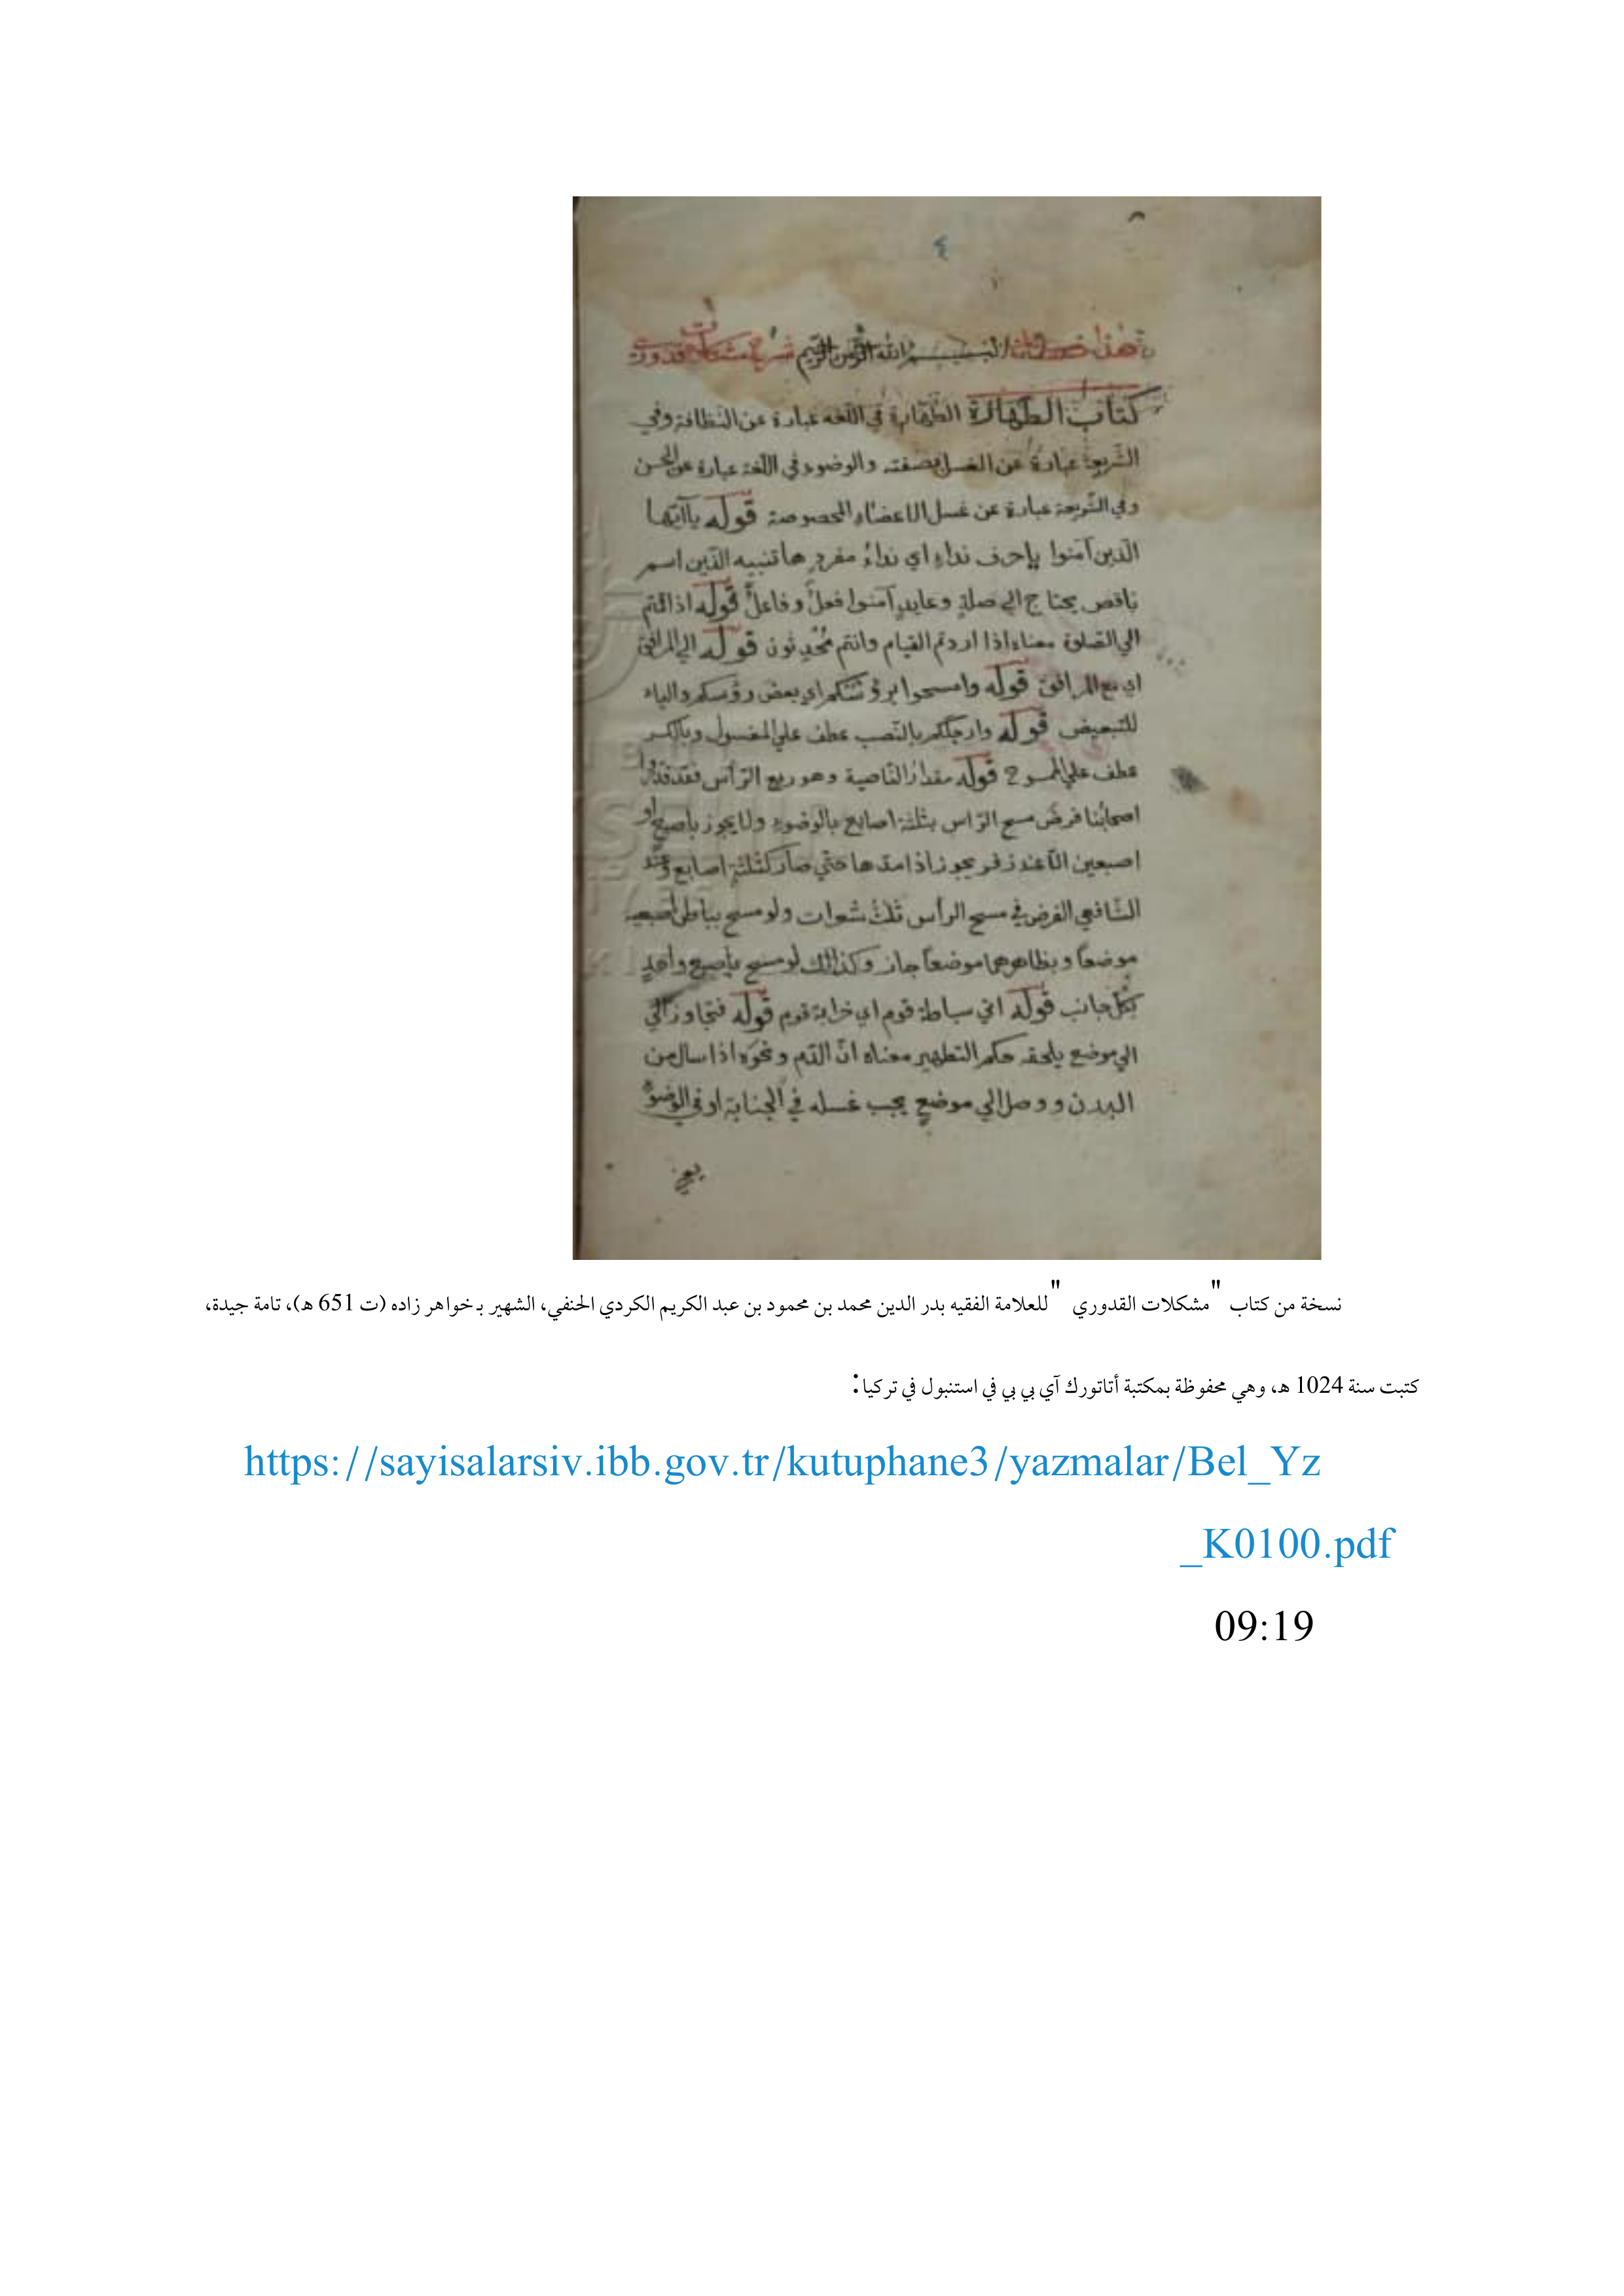 ٤
بسم الله الرحمن الرحيم شرح مشكلات قدوري
كتاب الطهارة الطهارة في اللغه عبارة عن النظافة وفي
الشريعة عبارة عن الغسل بصفته والوضوء في اللغة عبارة عن الحسن
وفي الشريعة عبارة عن غسل الاعضاء المخصوصة قوله ياآيها
الذين آمنوا يا حرف نداء اي نداء مفرد ها تنبيه الذين اسم
ناقص يحتاج الي صلة وعايد آمنوا فعل وفاعل قوله اذا قمتم
الي الصلوة معناه اذا اردتم القيام وانتم محدثون قوله الي المرافق
اي مع المرافق قوله وامسحوا برؤسكم اي بعض رؤسكم والباء
للتبعيض قوله وارجلكم بالنصب عطف علي المغسول وبالكسر
عطف علي الممسوح قوله مقدار الناصية وهو ربع الرأس فقد قدروا
اصحابنا فرض مسح الراس بثلثة اصابع بالوضوء ولا يجوز باصبع او
اصبعين الا عند زفر يجوز اذا مدها حتي صار كثلثة اصابع وعند
الشافعي الفرض في مسح الرأس ثلث شعرات ولو مسح بباطن اصبعيه
موضعا وبظاهرهما موضعا جاز وكذالك لو مسح باصبع واحد
بكل جانب قوله اتي سباطة قوم اي خرابة قوم قوله فتجاوز الي
الي موضع يلحقه حكم التطهير معناه ان الدم ونحوه اذا سال من
البدن ووصل الي موضع يجب غسله في الجنابة او في الوضوء
نسخة من كتاب "مشكلات القدوري "للعلامة الفقيه بدر الدين محمد بن محمود بن عبد الكريم الكردي الحنفي، الشهير بـ خواهر زاده (ت 651 هـ)، تامة جيدة،
كتبت سنة 1024 هـ، وهي محفوظة بمكتبة أتاتورك آي بي بي في استنبول في تركيا:
https://sayisalarsiv.ibb.gov.tr/kutuphane3/yazmalar/Bel_Yz
_K0100.pdf
09:19